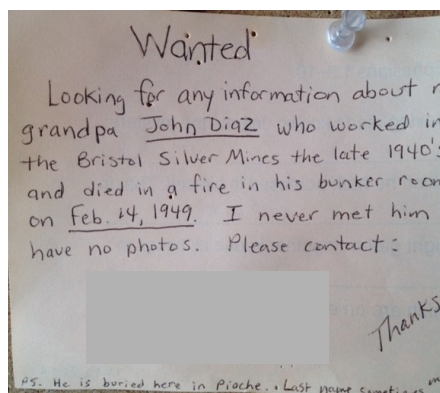 Wanted
Looking for any information about
grandpa John Diaz who worked in
the Bristol Silver Mines the late 1940's
and died in a fire in his bunker room
on Feb. 14, 1949. I never met him
have no photos. Please contact:
Thanks
PS. He is buried here in Pioche. Last name sometimes